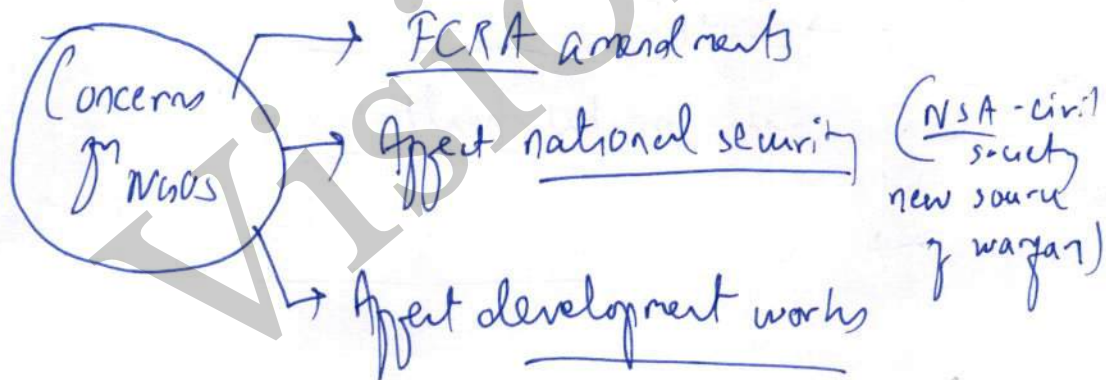 Concerns
of NGOs
FCRA amendments
Affect national security
(NSA - civil
society
new source
of warfare)
Affect development works
Vision